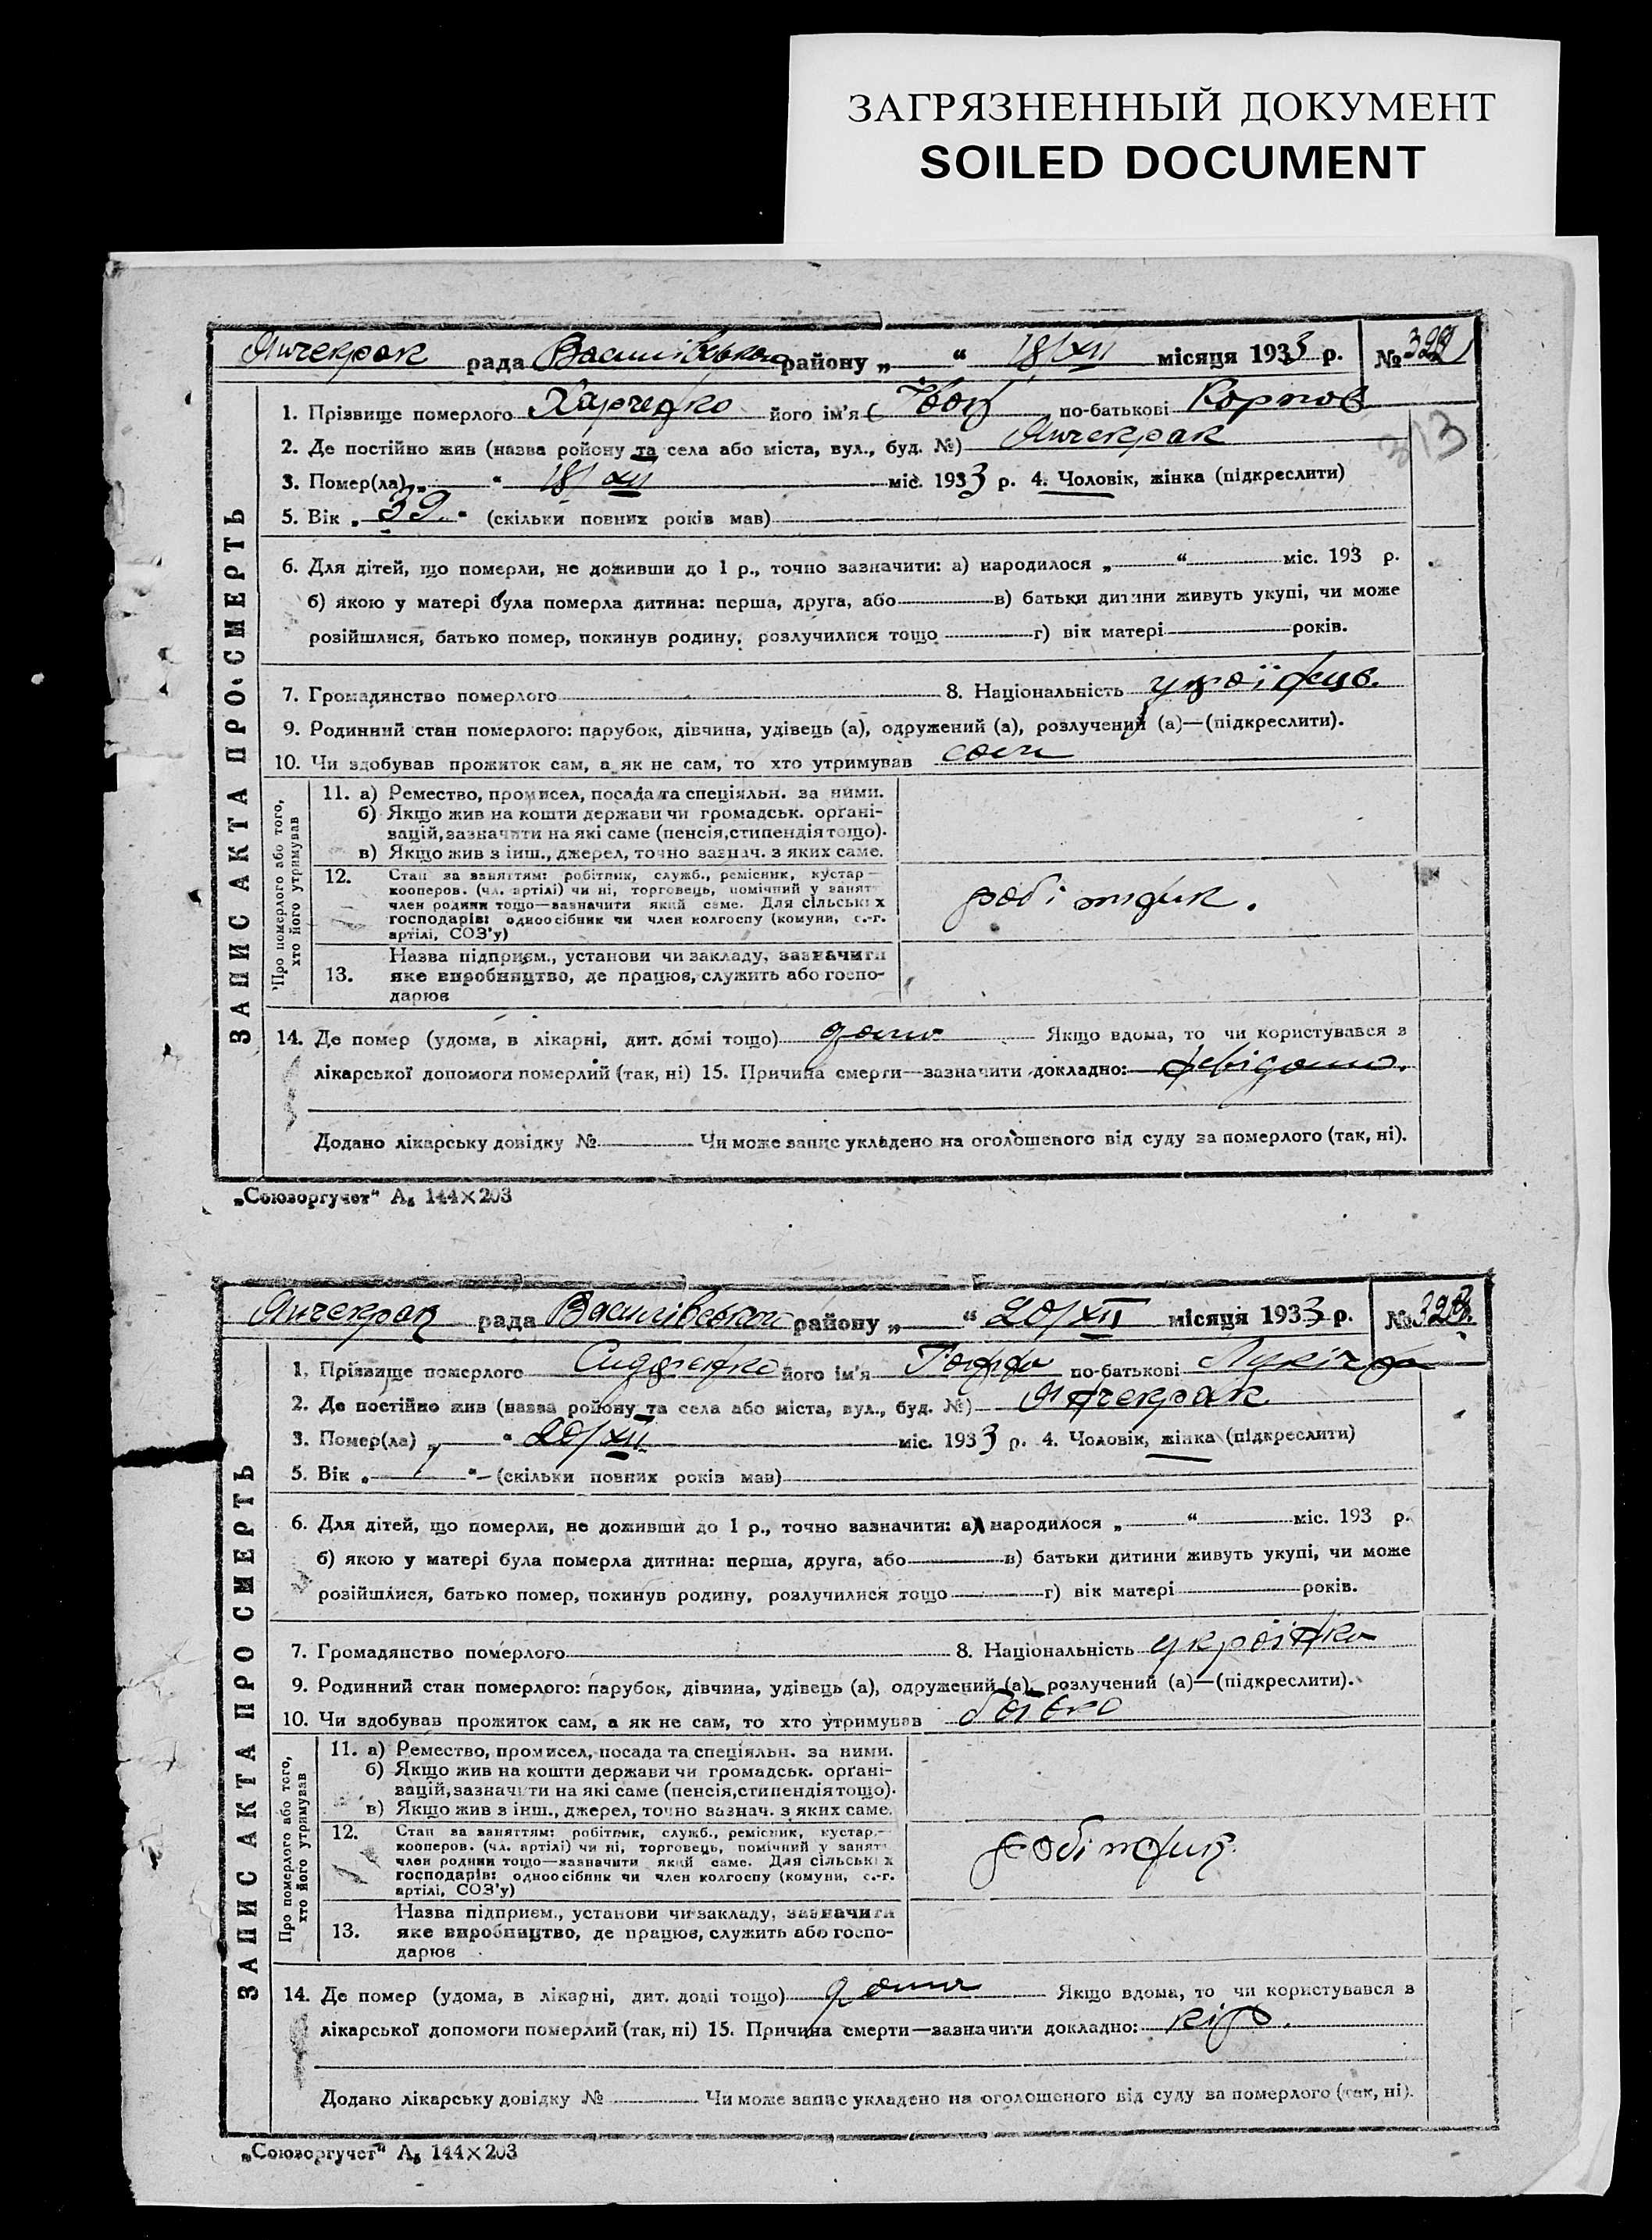 ЗАГРЯЗНЕННЫЙ ДОКУМЕНТ
SOILED DOCUMENT
Янчекрак рада Василівського району „ “ 18/XII місяця 1933 р. №
ЗАПИС АКТА ПРО СМЕРТЬ
1. Прізвище померлого Харченко його ім'я Іван по-батькові Карпов
313
2. Де постійно жив (назва ройону та села або міста, вул., буд. №) Янчекрак
3. Помер(ла) „ “ 18/XII міс. 1933 р. 4. Чоловік, жінка (підкреслити)
5. Вік „39.“ (скільки повних років мав)
6. Для дітей, що померли, не доживши до 1 р., точно зазначити: а) народилося „ “ міс. 193 р.
б) якою у матері була померла дитина: перша, друга, або в) батьки дитини живуть укупі, чи може
розійшлися, батько помер, покинув родину, розлучилися тощо г) вік матері років.
7. Громадянство померлого 8. Національність українець.
9. Родинний стан померлого: парубок, дівчина, удівець (а), одружений (а), розлучений (а)—(підкреслити).
10. Чи здобував прожиток сам, а як не сам, то хто утримував сам
Про померлого або того,
хто його утримував
11. а) Ремество, промисел, посада та спеціяльн. за ними.
б) Якщо жив на кошти держави чи громадськ. органі-
зацій, зазначити на які саме (пенсія, стипендія тощо).
в) Якщо жив з інш., джерел, точно зазнач. з яких саме.
12. Стан за заняттям: робітник, служб., ремісник, кустар—
кооперов. (чл. артілі) чи ні, торговець, помічний у занят
член родини тощо—зазначити який саме. Для сільських
господарів: одноосібник чи член колгоспу (комуни, с.-г.
артілі, СОЗ'у)
робітник.
Назва підприєм., установи чи закладу, зазначити
13. яке виробництво, де працює, служить або госпо-
дарює
14. Де помер (удома, в лікарні, дит. домі тощо) дома Якщо вдома, то чи користувався з
лікарської допомоги померлий (так, ні) 15. Причина смерти—зазначити докладно: невідомо.
Додано лікарську довідку № Чи може запис укладено на оголошеного від суду за померлого (так, ні).
„Союзоргучет“ А₅ 144×203
Янчекрак рада Василівської району „ “ 20/XII місяця 1933 р. №
ЗАПИС АКТА ПРО СМЕРТЬ
1. Прізвище померлого його ім'я Ганна по-батькові Лукінічна
2. Де постійно жив (назва ройону та села або міста, вул., буд. №) Янчекрак
3. Помер(ла) „ “ 20/XII міс. 1933 р. 4. Чоловік, жінка (підкреслити)
5. Вік „ “ (скільки повних років мав)
6. Для дітей, що померли, не доживши до 1 р., точно зазначити: а) народилося „ “ міс. 193 р.
б) якою у матері була померла дитина: перша, друга, або в) батьки дитини живуть укупі, чи може
розійшлися, батько помер, покинув родину, розлучилися тощо г) вік матері років.
7. Громадянство померлого 8. Національність українка
9. Родинний стан померлого: парубок, дівчина, удівець (а), одружений (а), розлучений (а)—(підкреслити).
10. Чи здобував прожиток сам, а як не сам, то хто утримував батько
Про померлого або того,
хто його утримував
11. а) Ремество, промисел, посада та спеціяльн. за ними.
б) Якщо жив на кошти держави чи громадськ. органі-
зацій, зазначити на які саме (пенсія, стипендія тощо).
в) Якщо жив з інш., джерел, точно зазнач. з яких саме.
12. Стан за заняттям: робітник, служб., ремісник, кустар.—
кооперов. (чл. артілі) чи ні, торговець, помічний у занят
член родини тощо—зазначити який саме. Для сільських
господарів: одноосібник чи член колгоспу (комуни, с.-г.
артілі, СОЗ'у)
робітник.
Назва підприєм., установи чи закладу, зазначити
13. яке виробництво, де працює, служить або госпо-
дарює
14. Де помер (удома, в лікарні, дит. домі тощо) дома Якщо вдома, то чи користувався з
лікарської допомоги померлий (так, ні) 15. Причина смерти—зазначити докладно: кір.
Додано лікарську довідку № Чи може запис укладено на оголошеного від суду за померлого (так, ні).
„Союзоргучет“ А₅ 144×203